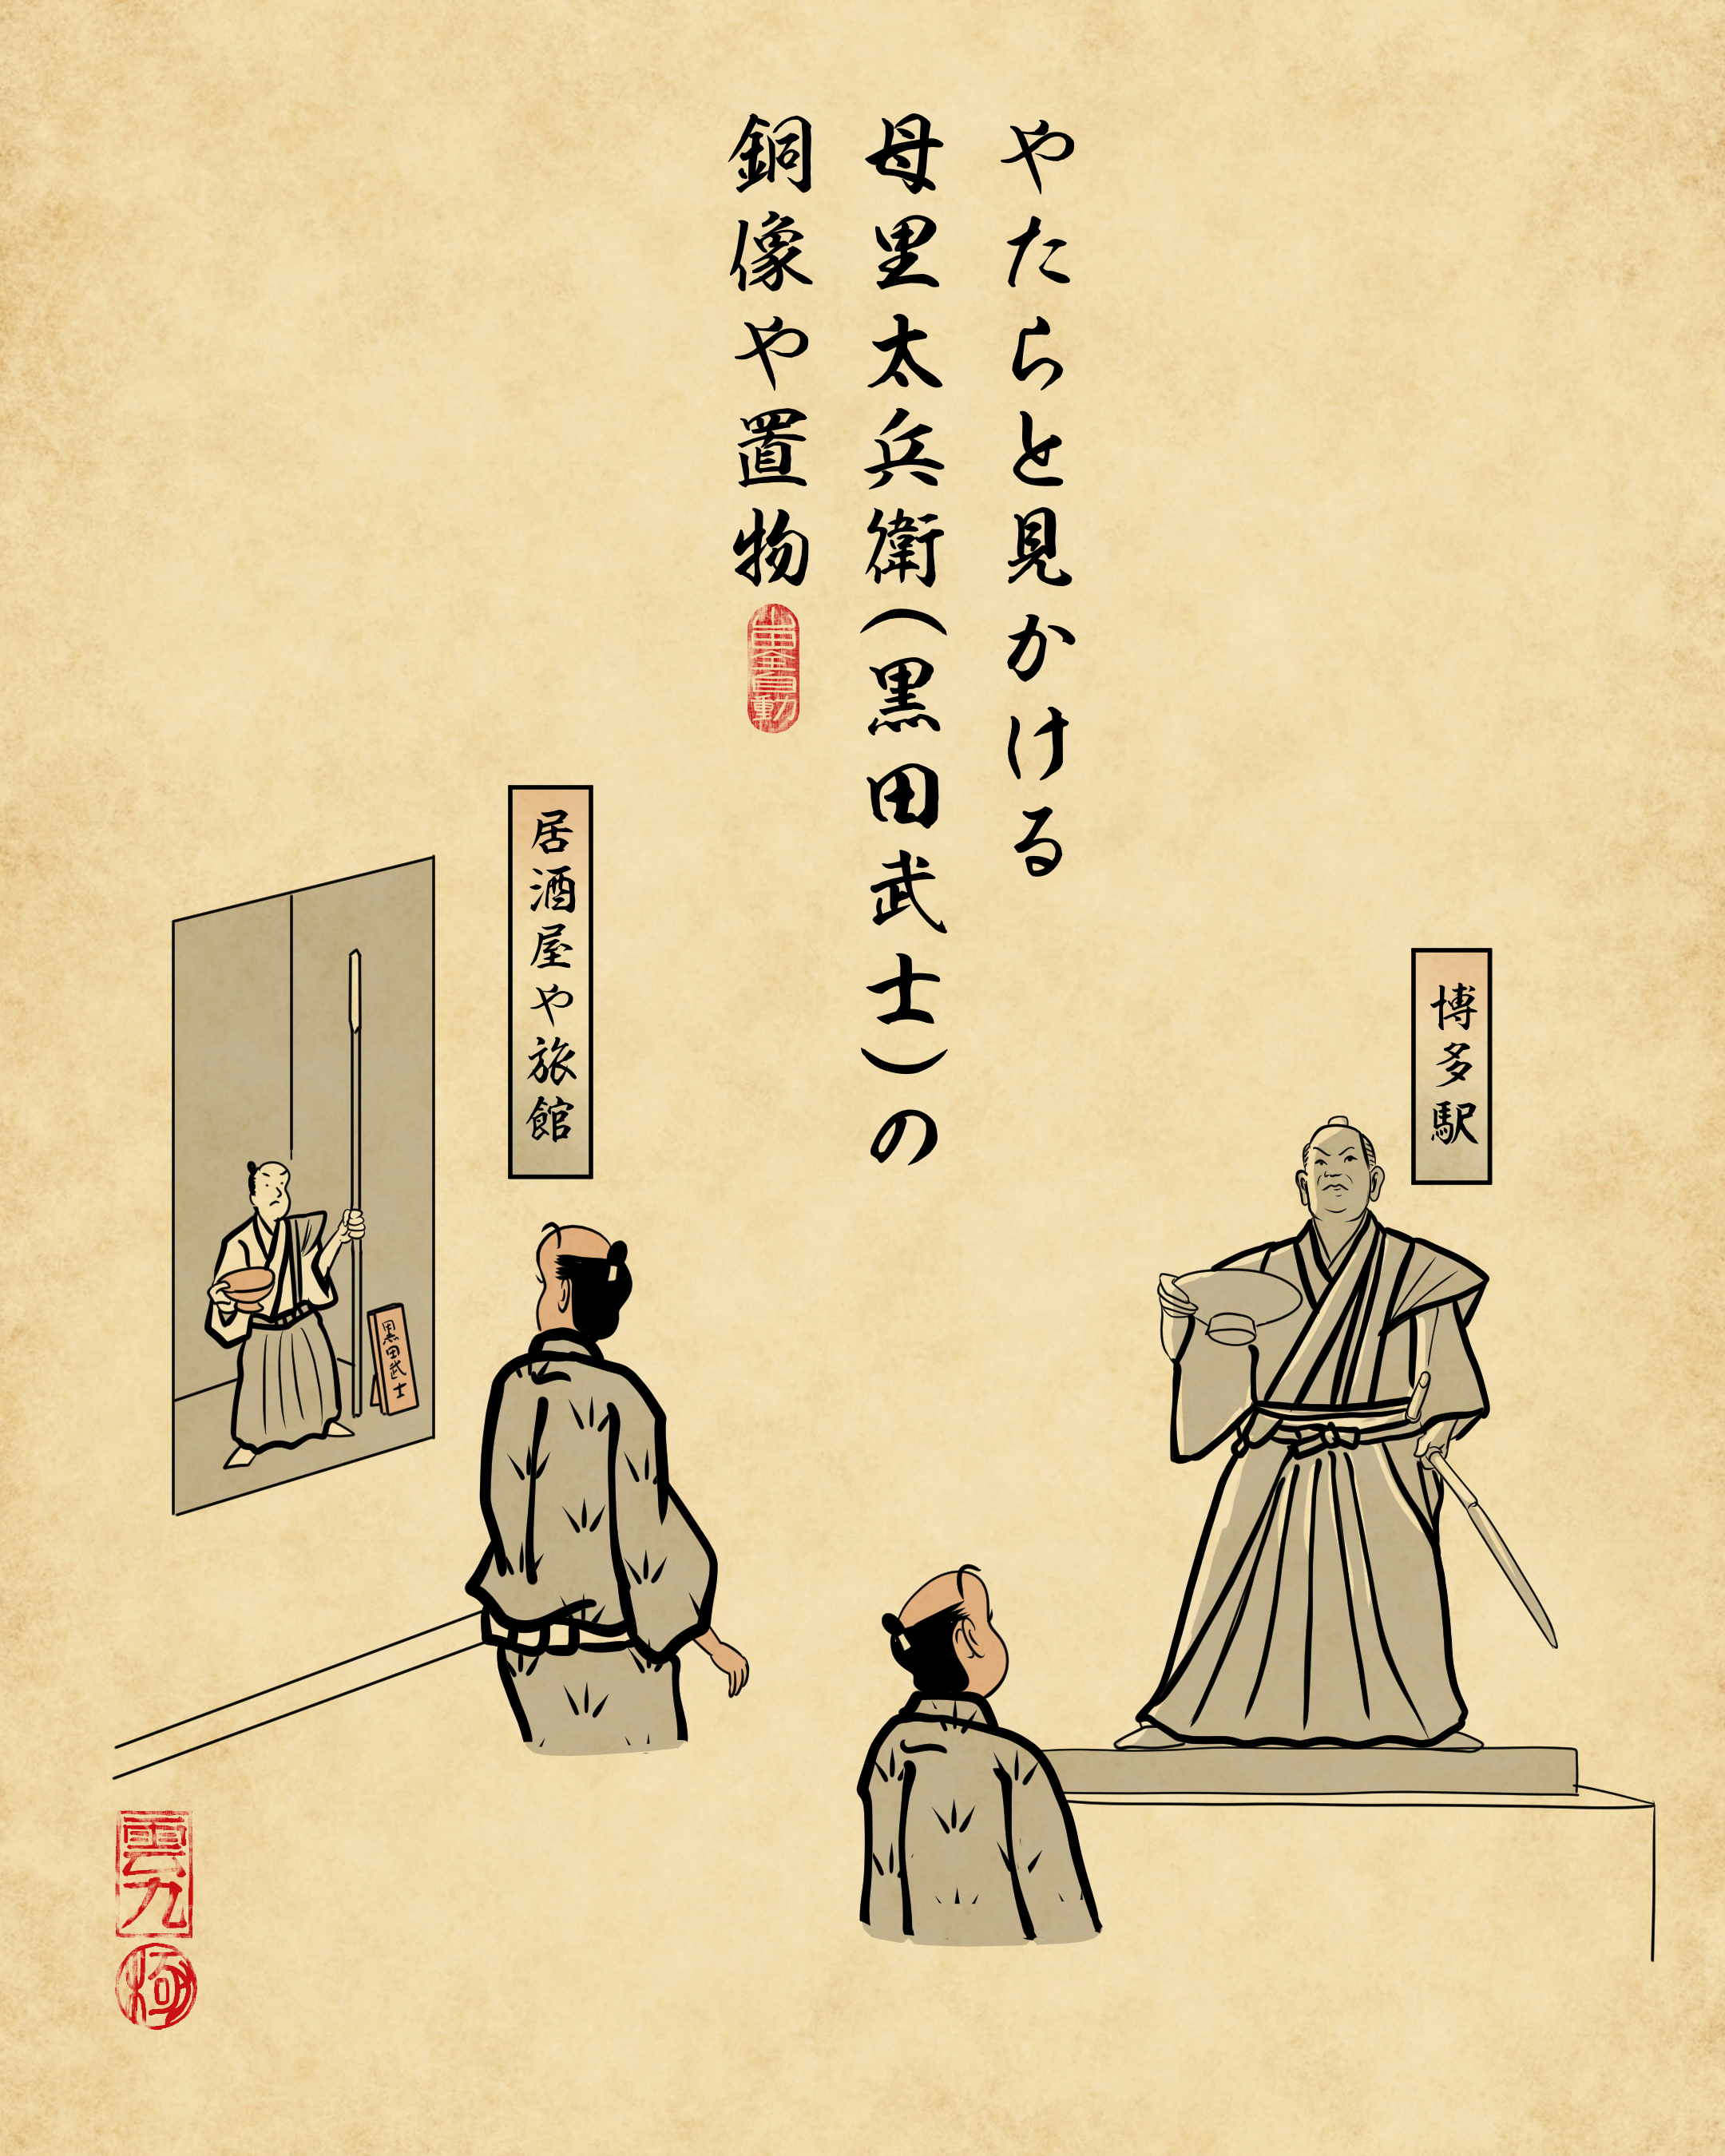 やたらと見かける
母里太兵衛(黒田武士)の
銅像や置物
山田全自動
博多駅
居酒屋や旅館
黒田武士
雲丸
極